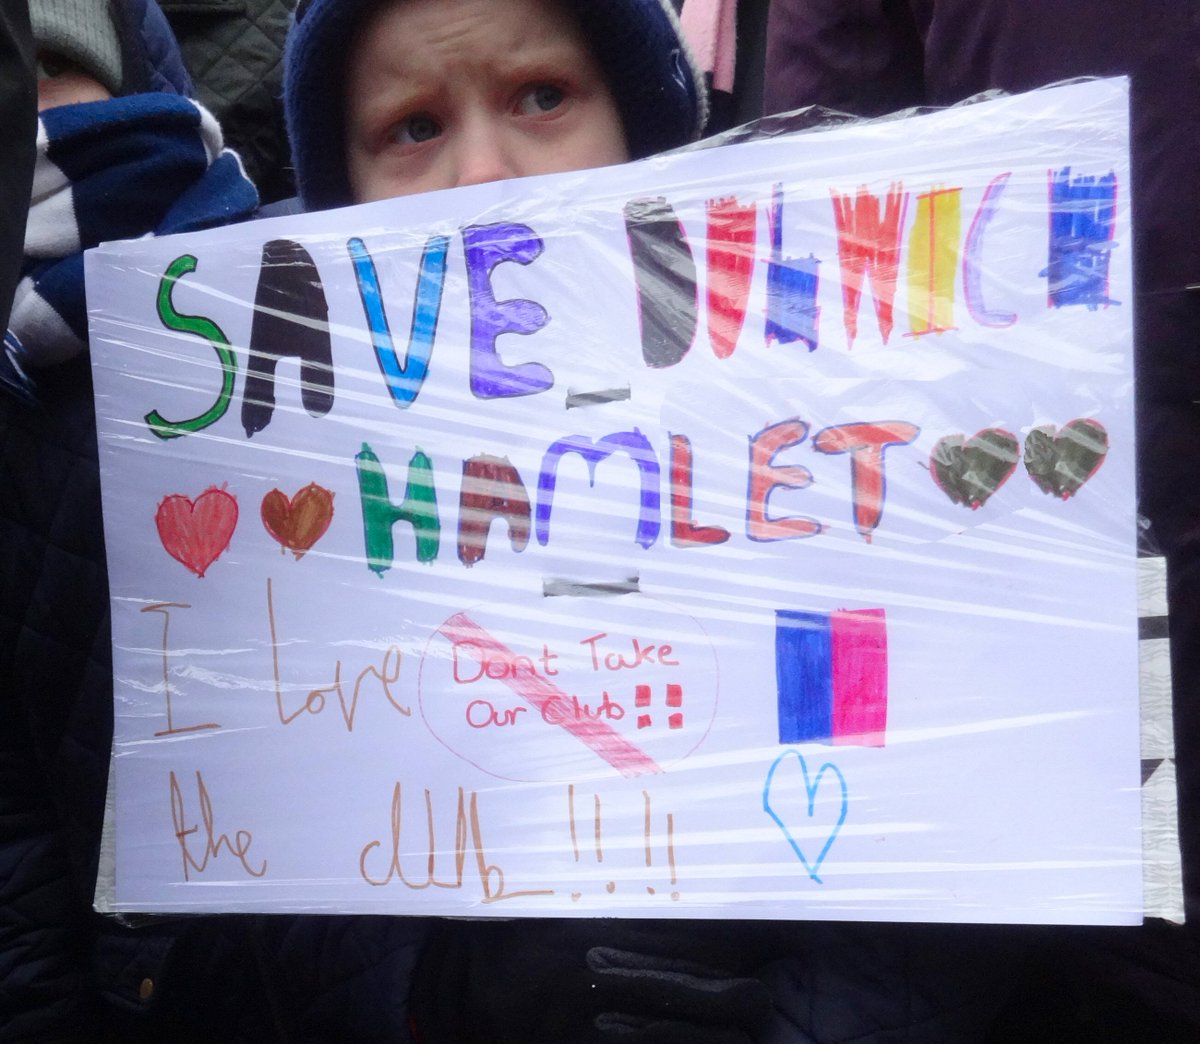 SAVE DULWICH
HAMLET
I Love
Dont Take
Our Club !!
the club !!!!